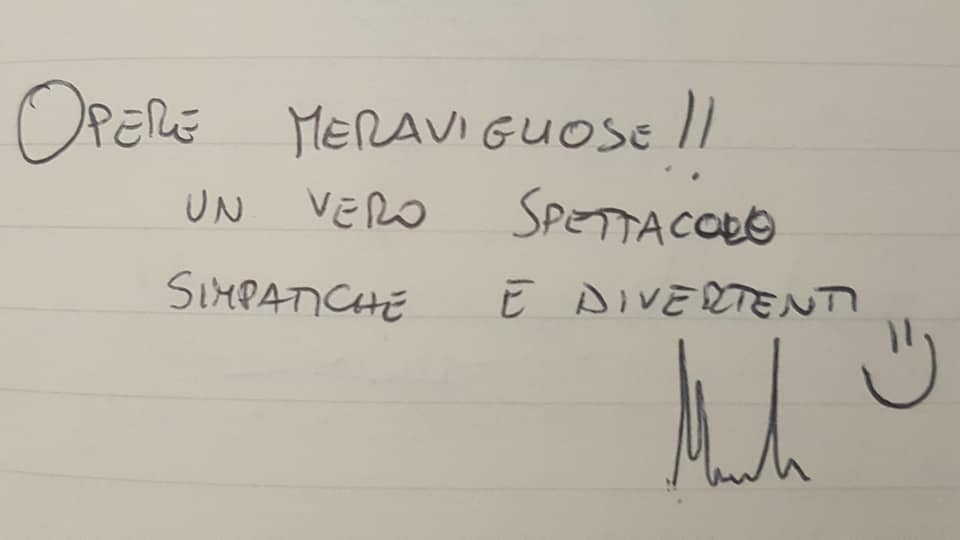 OPERE MERAVIGLIOSE!!
UN VERO SPETTACOLO
SIMPATICHE E DIVERTENTI